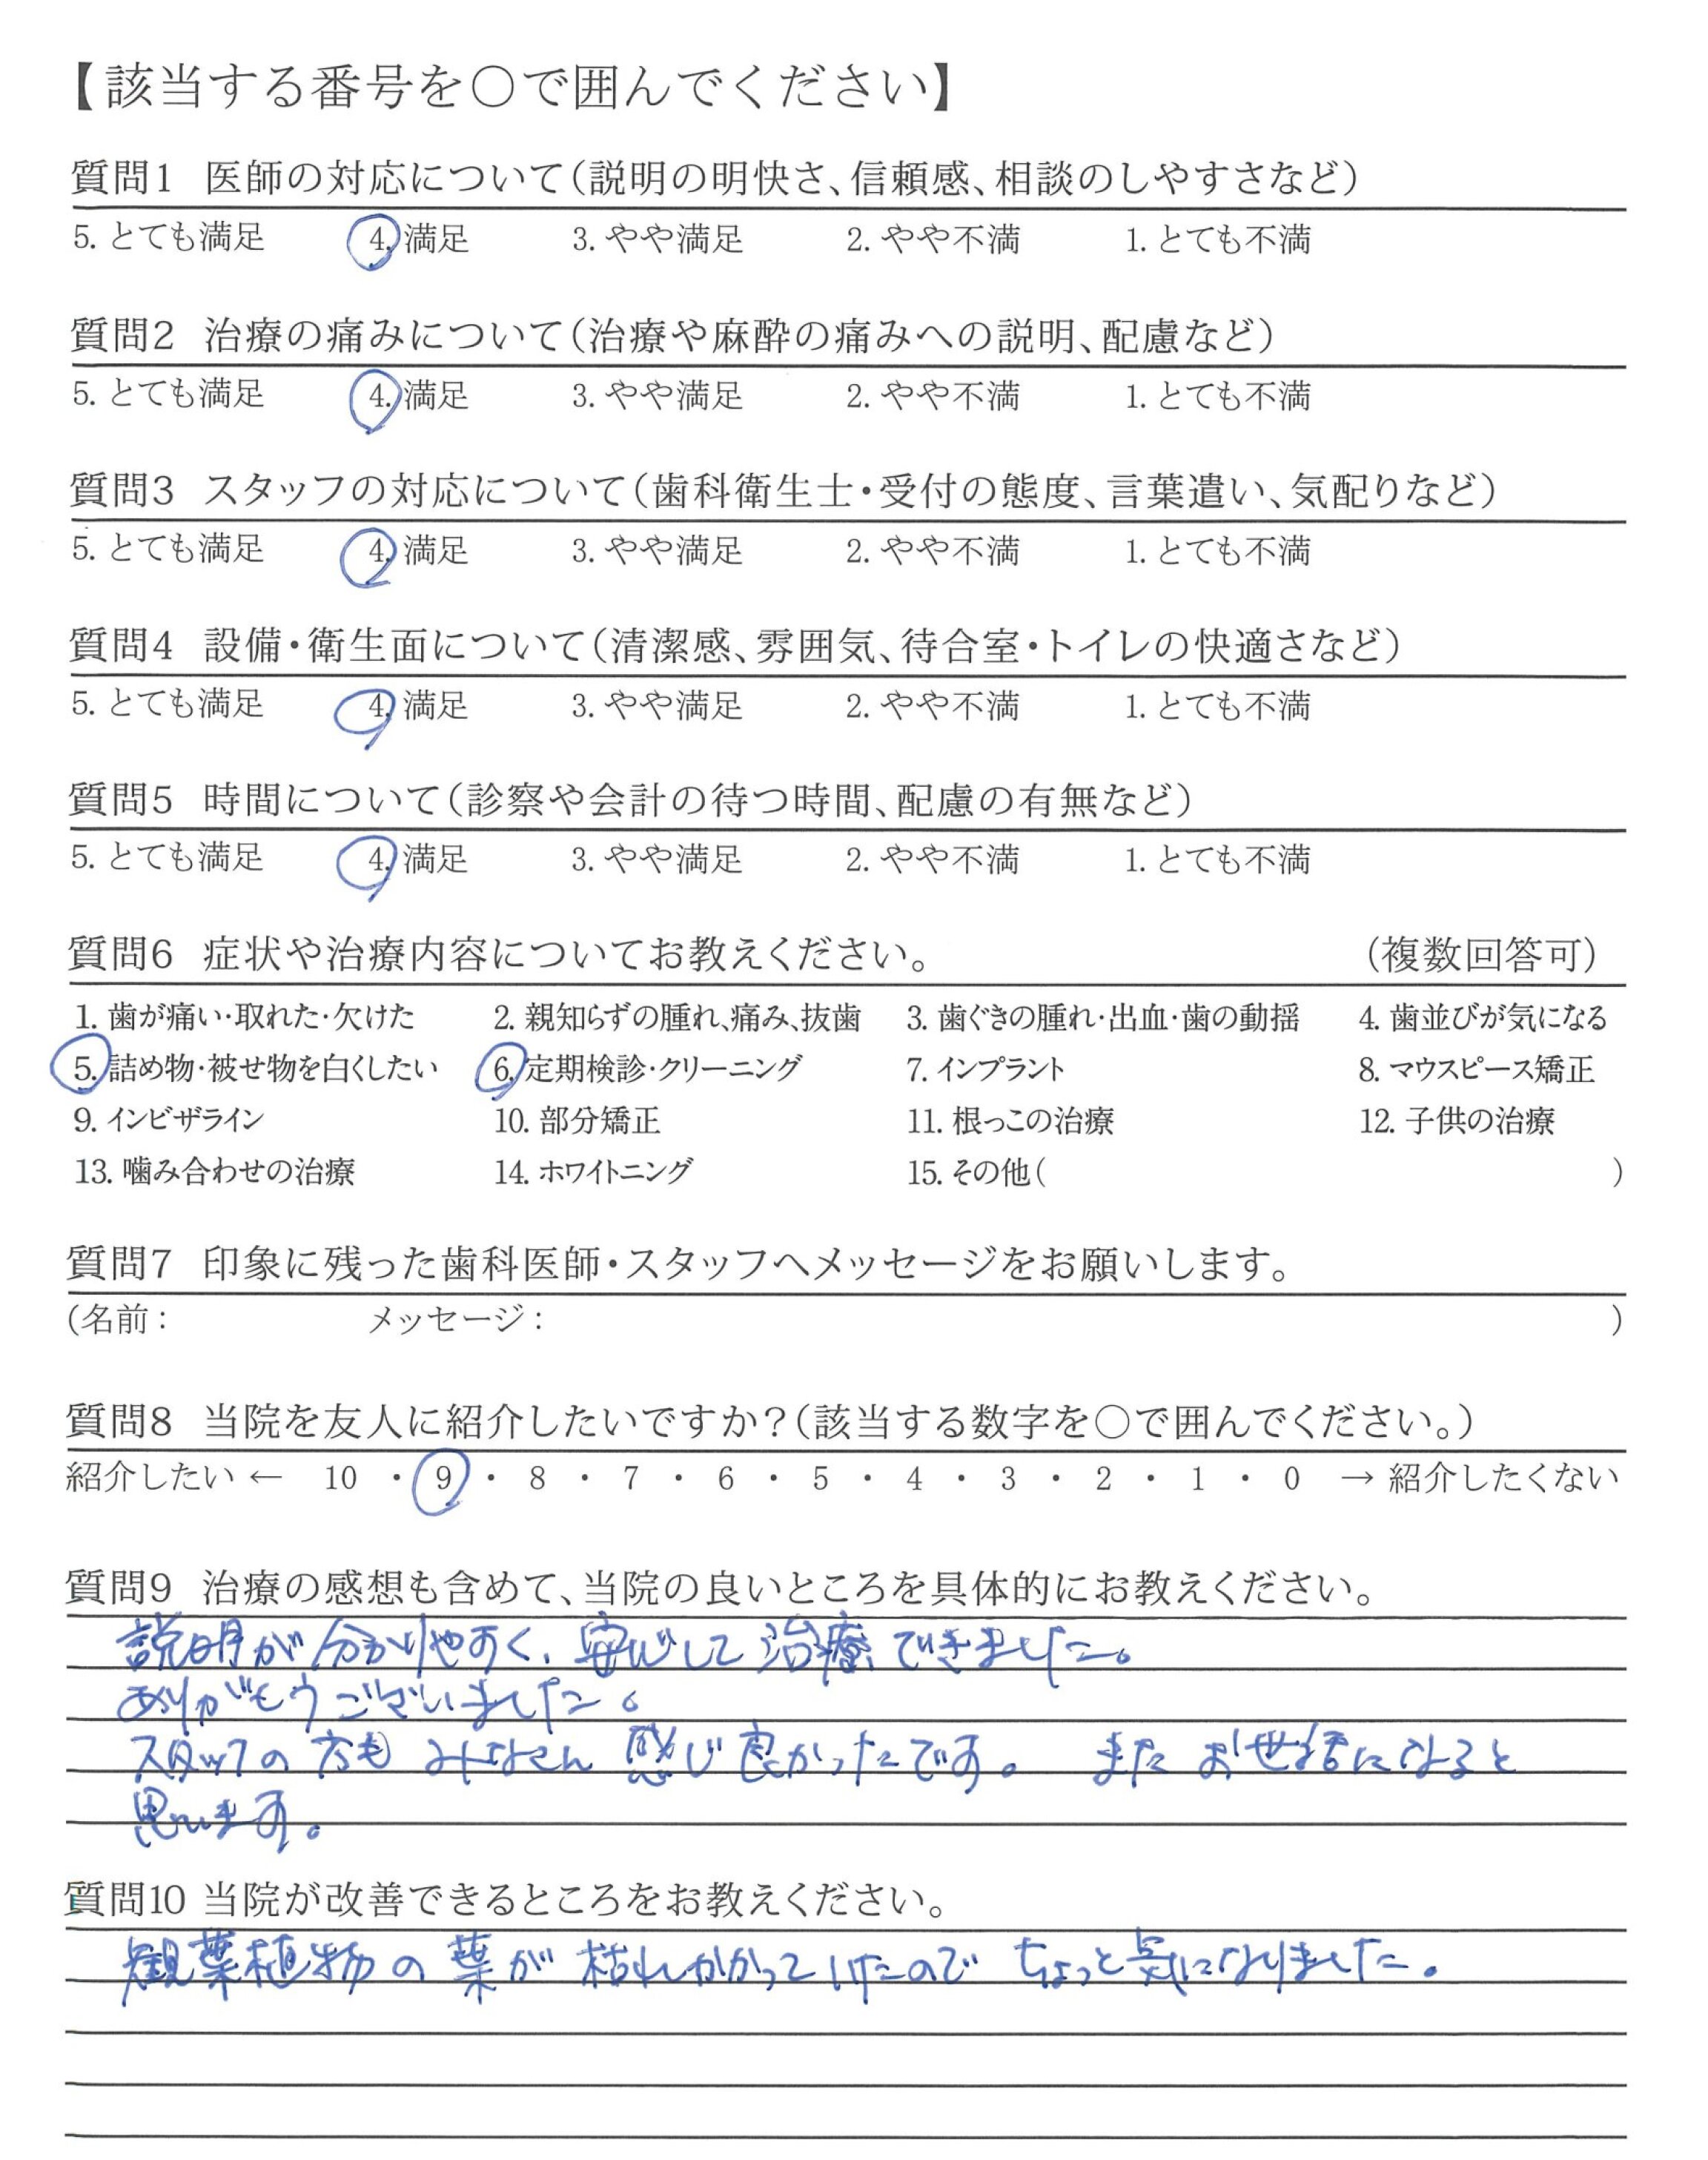 【該当する番号を〇で囲んでください】
質問1 医師の対応について(説明の明快さ、信頼感、相談のしやすさなど)
5. とても満足 4. 満足 3. やや満足 2. やや不満 1. とても不満
質問2 治療の痛みについて(治療や麻酔の痛みへの説明、配慮など)
5. とても満足 4. 満足 3. やや満足 2. やや不満 1. とても不満
質問3 スタッフの対応について(歯科衛生士・受付の態度、言葉遣い、気配りなど)
5. とても満足 4. 満足 3. やや満足 2. やや不満 1. とても不満
質問4 設備・衛生面について(清潔感、雰囲気、待合室・トイレの快適さなど)
5. とても満足 4. 満足 3. やや満足 2. やや不満 1. とても不満
質問5 時間について(診察や会計の待つ時間、配慮の有無など)
5. とても満足 4. 満足 3. やや満足 2. やや不満 1. とても不満
質問6 症状や治療内容についてお教えください。 (複数回答可)
1. 歯が痛い・取れた・欠けた 2. 親知らずの腫れ、痛み、抜歯 3. 歯ぐきの腫れ・出血・歯の動揺 4. 歯並びが気になる
5. 詰め物・被せ物を白くしたい 6. 定期検診・クリーニング 7. インプラント 8. マウスピース矯正
9. インビザライン 10. 部分矯正 11. 根っこの治療 12. 子供の治療
13. 噛み合わせの治療 14. ホワイトニング 15. その他( )
質問7 印象に残った歯科医師・スタッフへメッセージをお願いします。
(名前: メッセージ: )
質問8 当院を友人に紹介したいですか?(該当する数字を〇で囲んでください。)
紹介したい ← 10 ・ 9 ・ 8 ・ 7 ・ 6 ・ 5 ・ 4 ・ 3 ・ 2 ・ 1 ・ 0 → 紹介したくない
質問9 治療の感想も含めて、当院の良いところを具体的にお教えください。
説明が分かりやすく、安心して治療できました。
ありがとうございました。
スタッフの方も みなさん 感じ良かったです。 また お世話になると
思います。
質問10 当院が改善できるところをお教えください。
観葉植物の葉が枯れかかっていたのでちょっと気になりました。